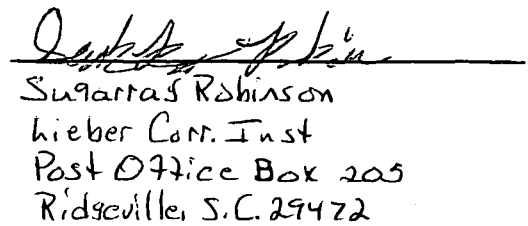 Sugarraf Robinson
Lieber Corr. Inst
Post Office Box 205
Ridgeville, S.C. 29472